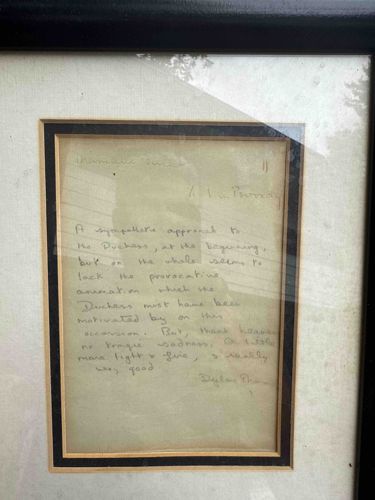 A sympathetic approach to
the Duchess, at the beginning,
but on the whole seems to
lack the provocative
animation which the
Duchess must have been
motivated by on this
occasion. But, thank heaven
no tongue sadness. A little
more light & fire, & really
very good
Dylan